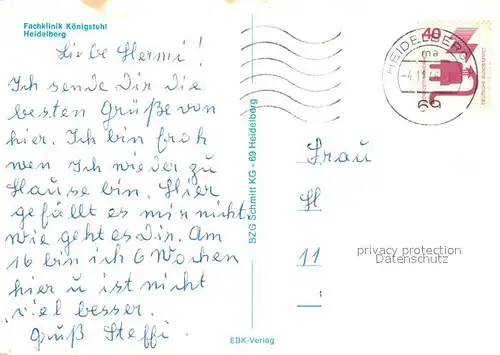 Fachklinik Königstuhl
Heidelberg
Liebe Hermi!
Ich sende Dir die
besten Grüße von
hier. Ich bin froh
wen Ich wieder zu
Hause bin. Hier
gefällt es mir nicht
wie geht es Dir. Am
16 bin ich 6 Wochen
hier u ist nicht
viel besser.
Gruß Steffi.
BZG Schmitt KG - 69 Heidelberg
EBK-Verlag
HEIDELBERG
ma
40
DEUTSCHE BUNDESPOST
Frau
H
11
privacy protection
Datenschutz